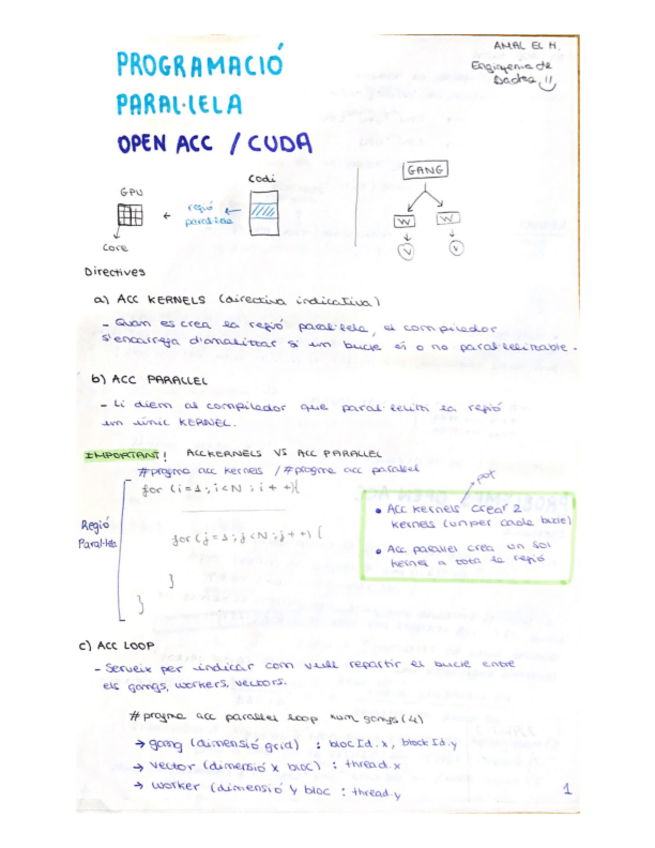 AMAL EL H.
Enginyeria de
Dades !!
PROGRAMACIÓ
PARAL·LELA
OPEN ACC / CUDA
GPU
core
regió
paral·lela
codi
GANG
W W
V V
Directives
a) ACC KERNELS (directiva indicativa)
- Quan es crea la regió paral·lela, el compilador
s'encarrega d'analitzar si un bucle és o no paral·lelitzable.
b) ACC PARALLEL
- Li diem al compilador que paral·lelitzi la regió
en un únic KERNEL.
IMPORTANT! ACC KERNELS VS ACC PARALLEL
#pragma acc kernels / #pragma acc parallel
for (i=1; i<N; i++){
for (j=1; j<N; j++) {
}
}
Regió
Paral·lela
pot
• Acc kernels crear 2
kernels (un per cada bucle)
• Acc parallel crea un sol
kernel a tota la regió
c) ACC LOOP
- Serveix per indicar com vull repartir el bucle entre
els gangs, workers, vectors.
#pragma acc parallel loop num_gangs(4)
→ gang (dimensió grid) : blocId.x, blockId.y
→ vector (dimensió x bloc) : thread.x
→ worker (dimensió y bloc : thread.y
1